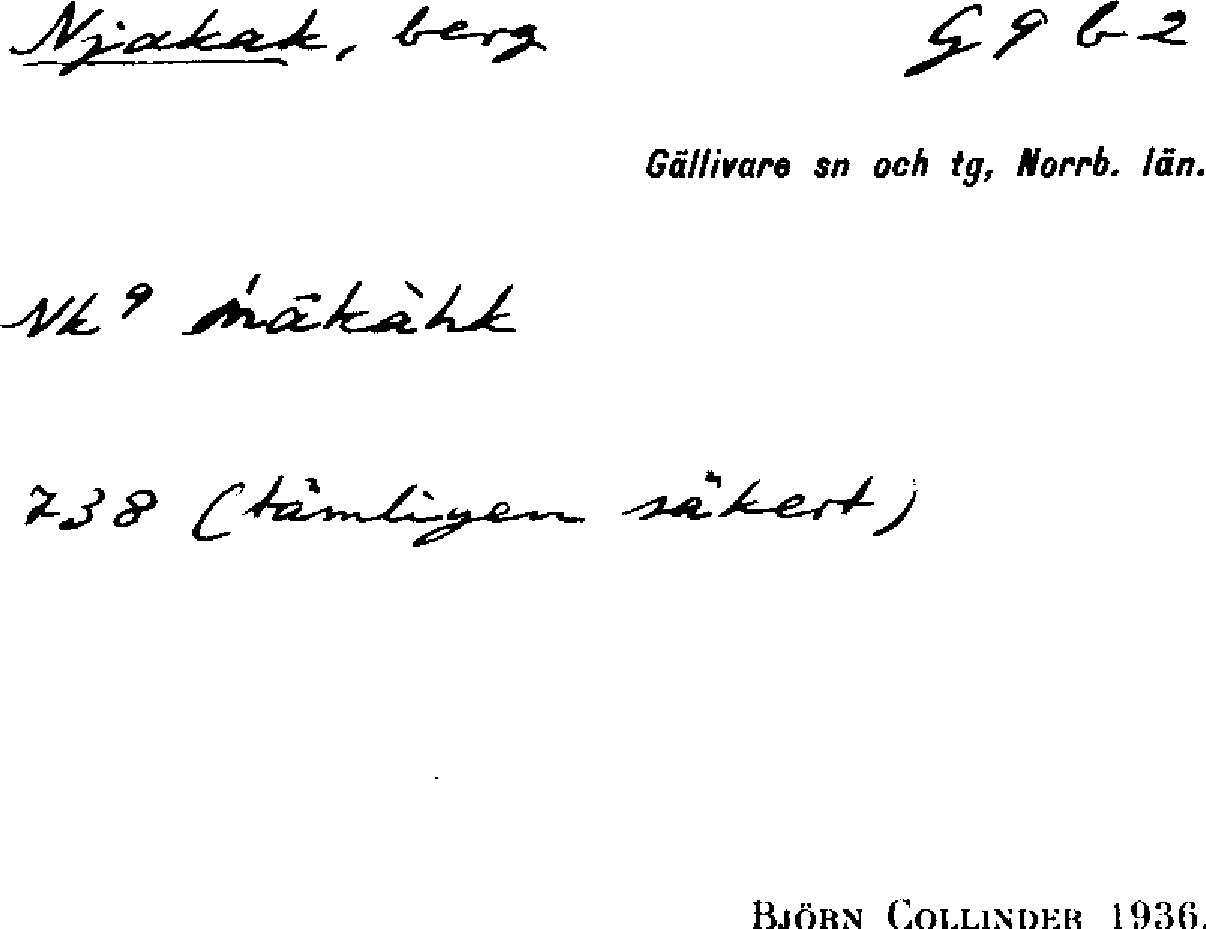 Njakak, berg G 9 b 2
Gällivare sn och tg, Norrb. län.
Nk 9 ńākàhk
738 (tämligen säkert)
BJÖRN COLLINDER 1936.